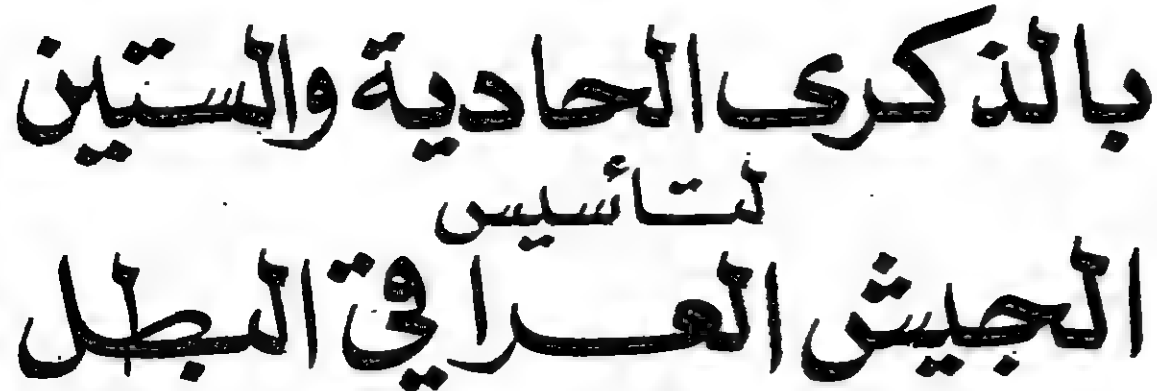 بالذكرى الحادية والستين
لتأسيس
الجيش العراقي البطل